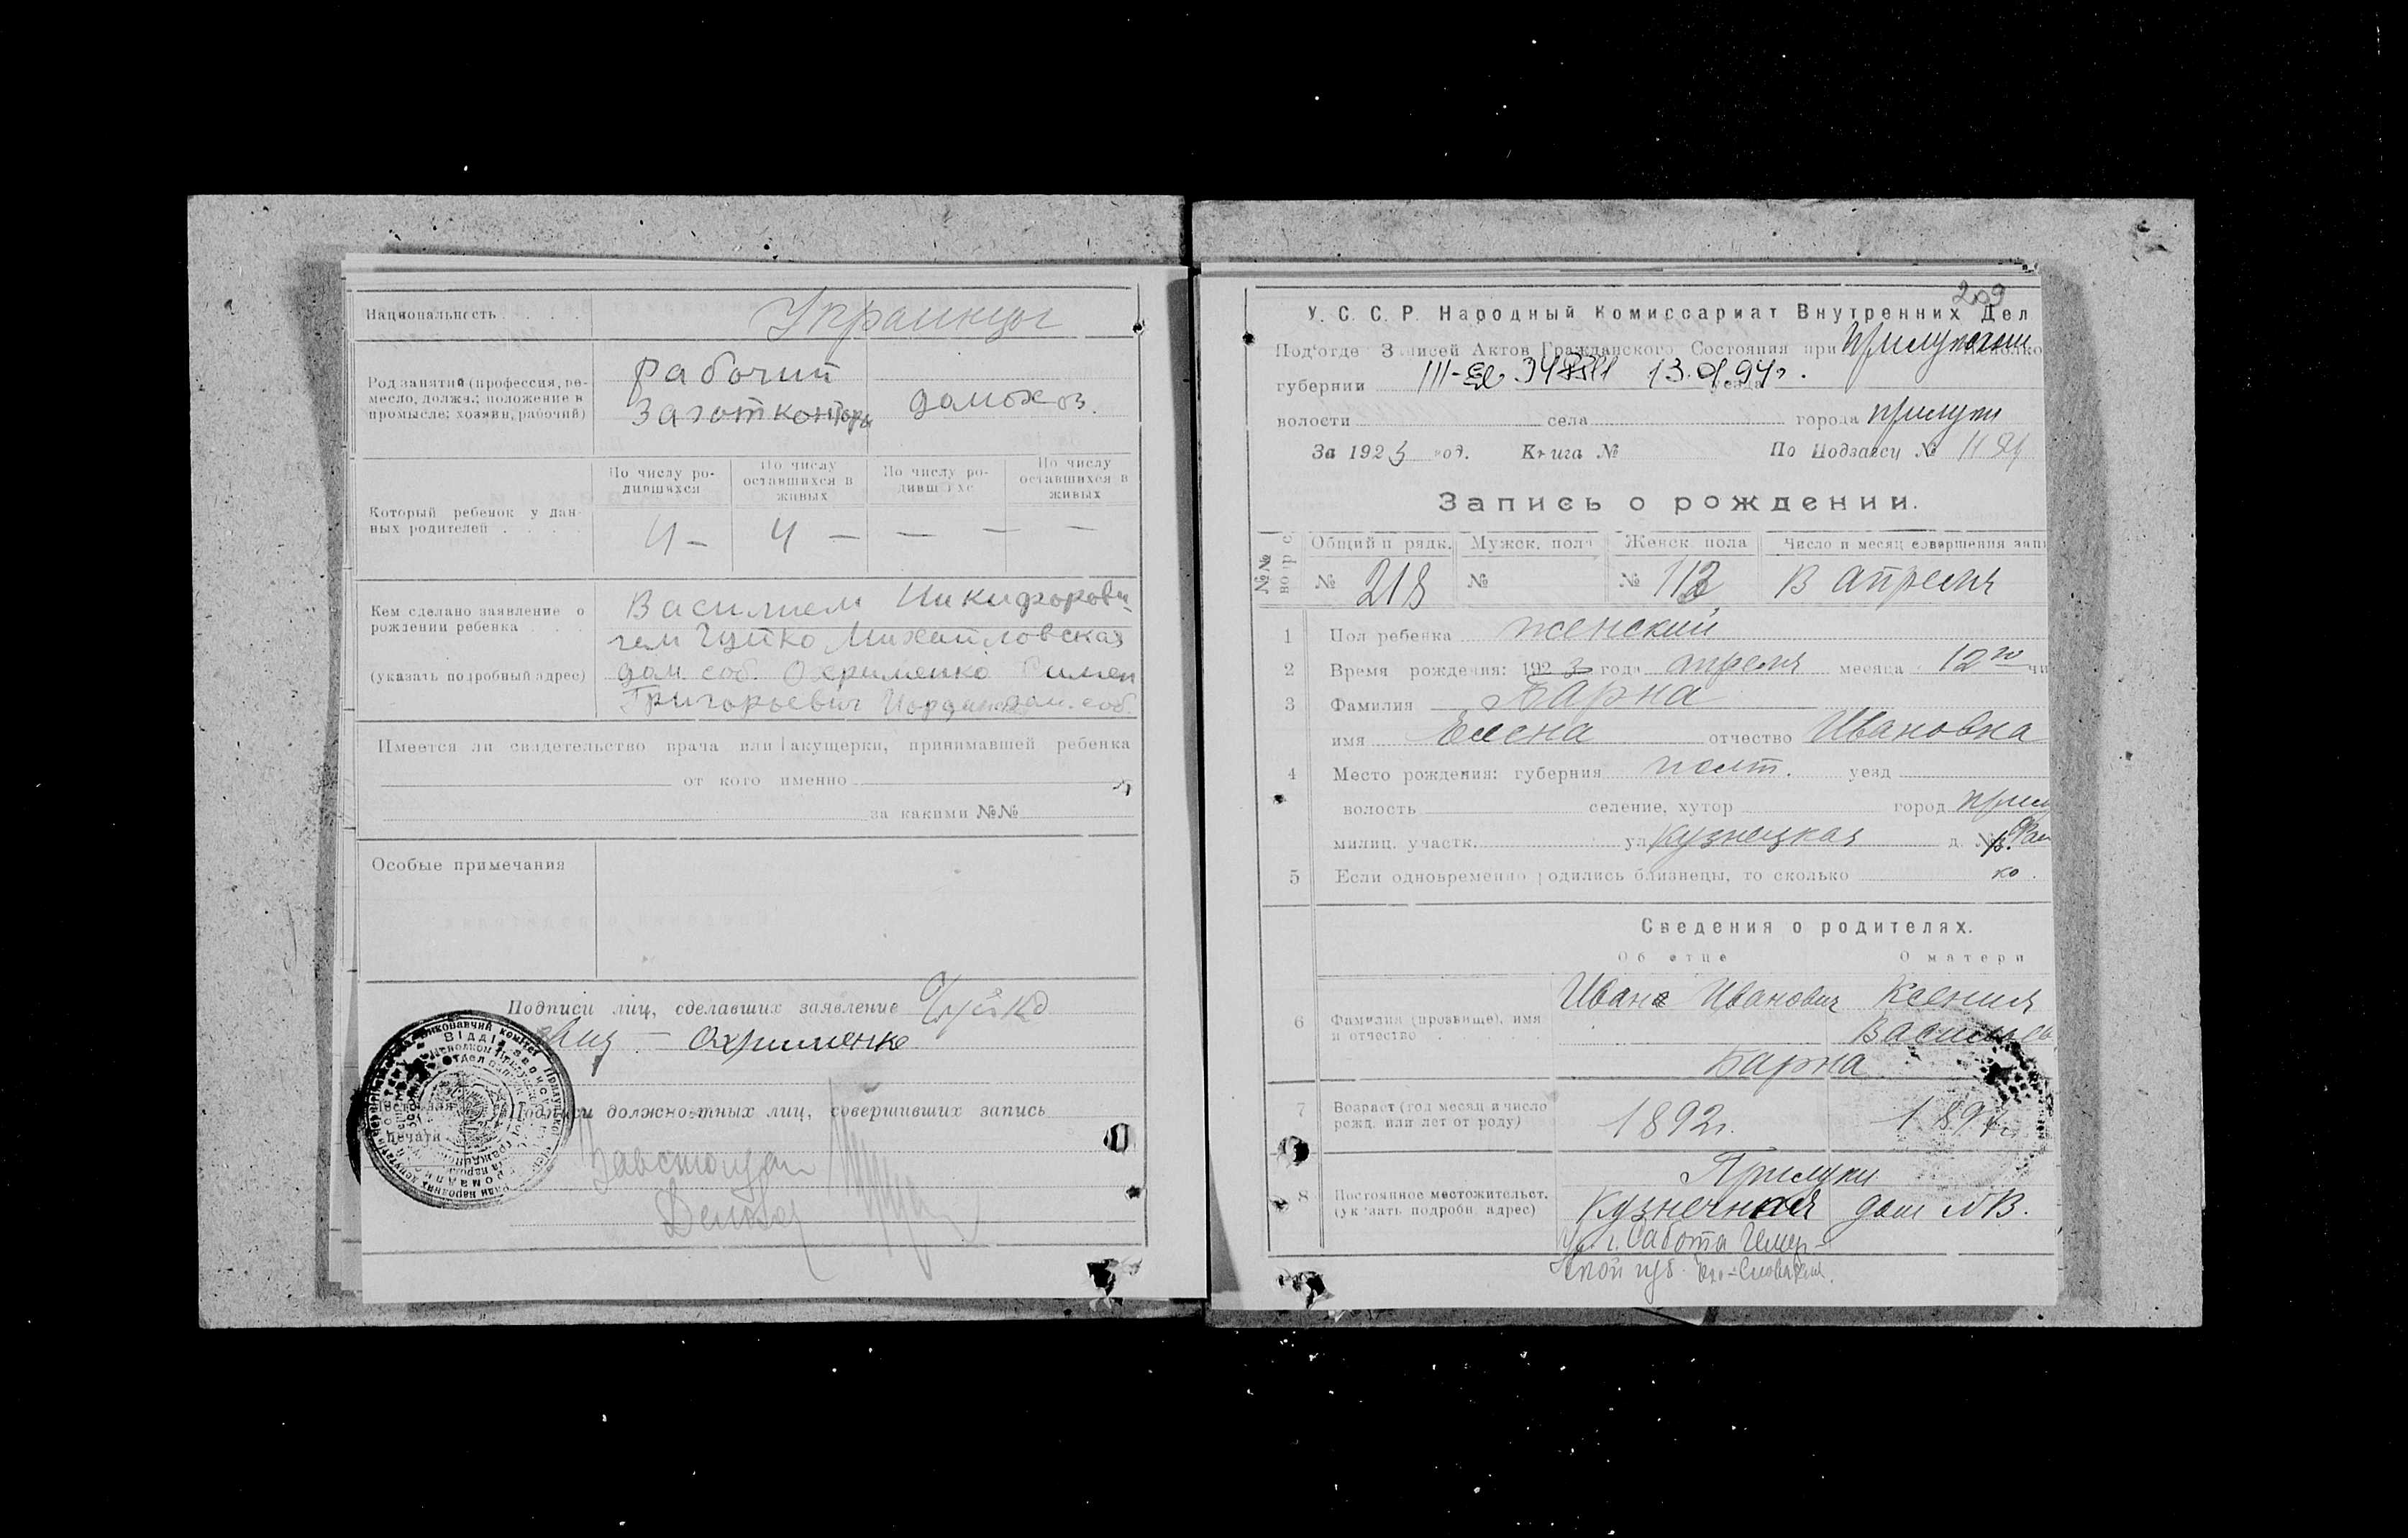 Национальность
Украинцы
Род занятий (профессия, ре-
месло, должн.; положение в
промысле; хозяин, рабочий)
Рабочий
Заготконторы
домохоз.
По числу ро-
дившихся
По числу
оставшихся в
живых
По числу ро-
дившихся
По числу
оставшихся в
живых
Который ребенок у дан-
ных родителей
4 —
4 —
— —
—
Кем сделано заявление о
рождении ребенка
(указать подробный адрес)
Василием Никифорови-
чем Гуйко Михайловская
дом. соб. Охрименко
Григорьевич дом. соб.
Имеется ли свидетельство врача или акушерки, принимавшей ребенка
от кого именно
за какими №№
Особые примечания
Подписи лиц, сделавших заявление Гуйко
Охрименко
Подписи должностных лиц, совершивших запись
печати
209
У. С. С. Р. Народный Комиссариат Внутренних Дел
Под'отде Записей Актов Гражданского Состояния при
губернии уезда
волости села города Прилуки
За 1923 год. Книга № По Подзагсу №
Запись о рождении.
№№
Общий п рядк. Мужск. пола Женск. пола Число и месяц совершения зап
№ 218 № № 112 апреля
1 Пол ребенка женский
2 Время рождения: 1923 года апреля месяца 12 го чи
3 Фамилия Барна
имя Елена отчество Ивановна
4 Место рождения: губерния полт. уезд
волость селение, хутор город прилу
милиц. участк. ул Кузнецкая д. №
ко.
5 Если одновременно родились близнецы, то сколько
Сведения о родителях.
Об отце О матери
6 Фамилия (прозвище), имя
и отчество
Иван Иванович
Ксения
Василь
Барна
7 Возраст (год месяц и число
рожд. или лет от роду)
1892г.
8 Постоянное местожительст.
(указать подробн. адрес)
Прилуки
Кузнечная дом №